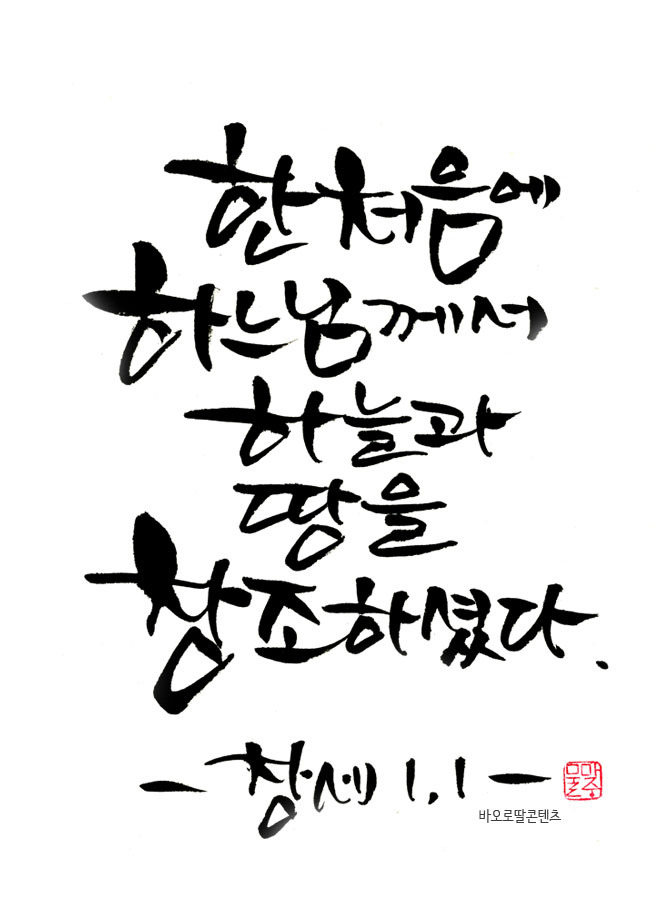 한처음에
하느님께서
하늘과
땅을
창조하셨다.
- 창세 1,1 -
바오로딸콘텐츠